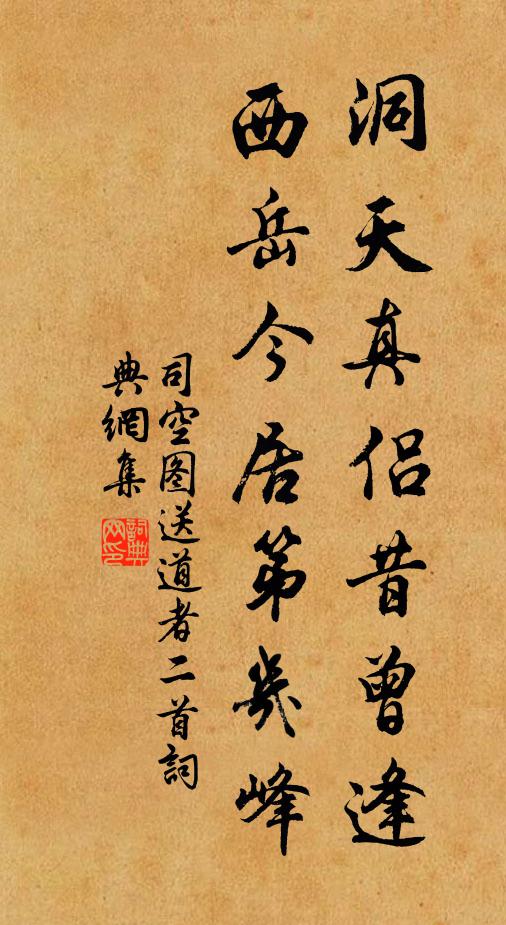 洞天真侣昔曾逢
西岳今居第幾峰
司空图送道者二首詞
典網集
詞典网印